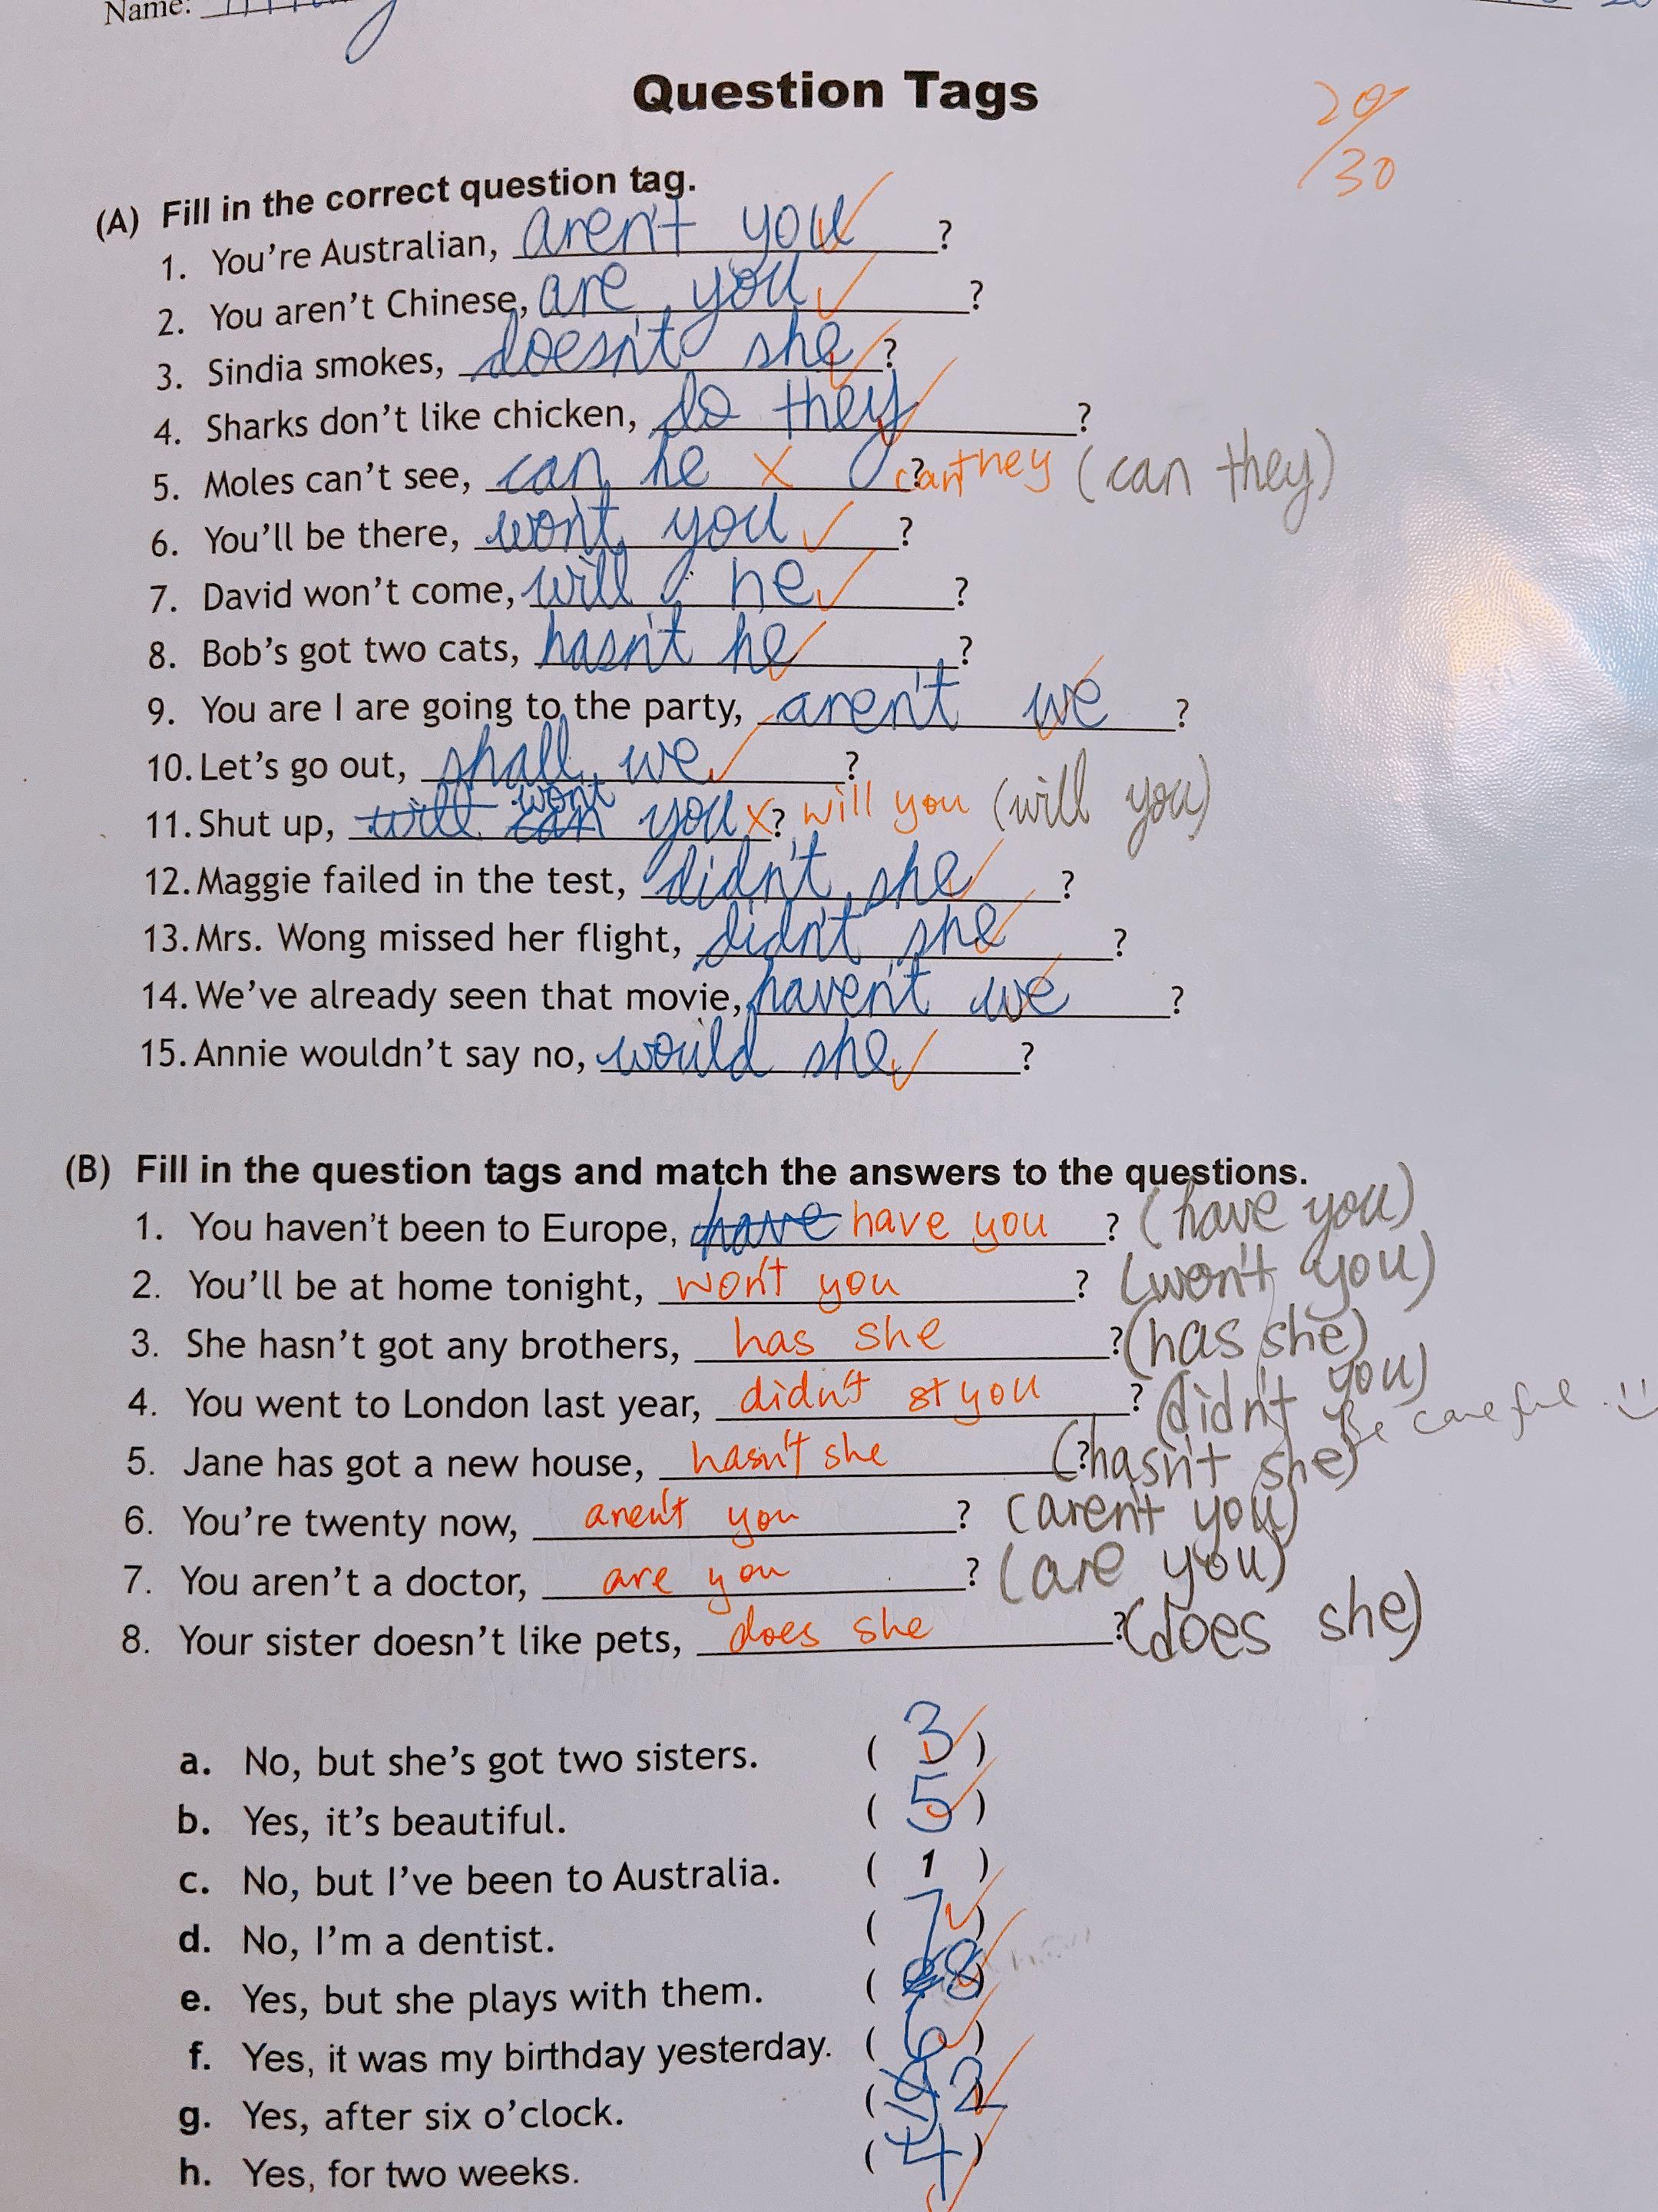 Name:
Question Tags
20/30
(A) Fill in the correct question tag.
1. You're Australian, aren't you ?
2. You aren't Chinese, are you ?
3. Sindia smokes, doesn't she ?
4. Sharks don't like chicken, do they ?
5. Moles can't see, can he ? can they (can they)
6. You'll be there, won't you ?
7. David won't come, will he ?
8. Bob's got two cats, hasn't he ?
9. You are I are going to the party, aren't we ?
10. Let's go out, shall we ?
11. Shut up, will can won't you ? will you (will you)
12. Maggie failed in the test, didn't she ?
13. Mrs. Wong missed her flight, didn't she ?
14. We've already seen that movie, haven't we ?
15. Annie wouldn't say no, would she ?
(B) Fill in the question tags and match the answers to the questions.
1. You haven't been to Europe, have have you ? (have you)
2. You'll be at home tonight, won't you ? (won't you)
3. She hasn't got any brothers, has she ? (has she)
4. You went to London last year, didn't you ? (didn't you)
Be careful
5. Jane has got a new house, hasn't she ? (hasn't she)
6. You're twenty now, aren't you ? (aren't you)
7. You aren't a doctor, are you ? (are you)
8. Your sister doesn't like pets, does she ? (does she)
a. No, but she's got two sisters. ( 3 )
b. Yes, it's beautiful. ( 5 )
c. No, but I've been to Australia. ( 1 )
d. No, I'm a dentist. ( 7 )
e. Yes, but she plays with them. ( 8 )
f. Yes, it was my birthday yesterday. ( 6 )
g. Yes, after six o'clock. ( 2 )
h. Yes, for two weeks. ( 4 )